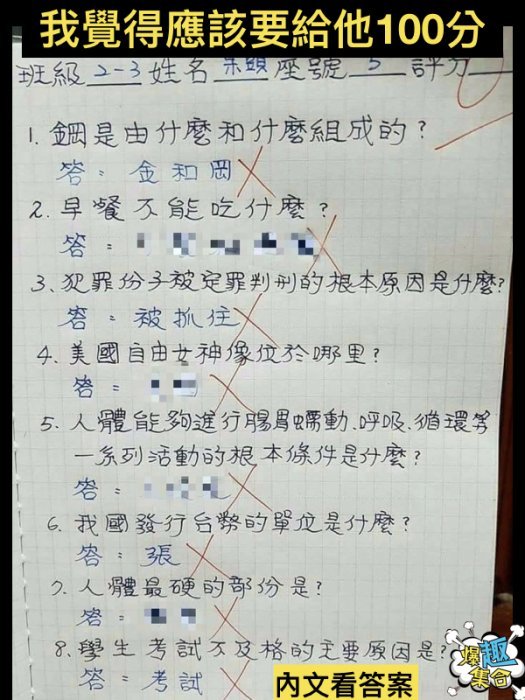 我覺得應該要給他100分
班級 2-3 姓名 朱頭 座號 5 評分
1. 鋼是由什麼和什麼組成的?
答: 金和岡
2. 早餐不能吃什麼?
答:
3. 犯罪份子被定罪判刑的根本原因是什麼?
答: 被抓住
4. 美國自由女神像位於哪里?
答:
5. 人體能夠進行腸胃蠕動、呼吸、循環等
一系列活動的根本條件是什麼?
答:
6. 我國發行台幣的單位是什麼?
答: 張
7. 人體最硬的部份是?
答:
8. 學生考試不及格的主要原因是?
答: 考試
內文看答案
爆趣集合